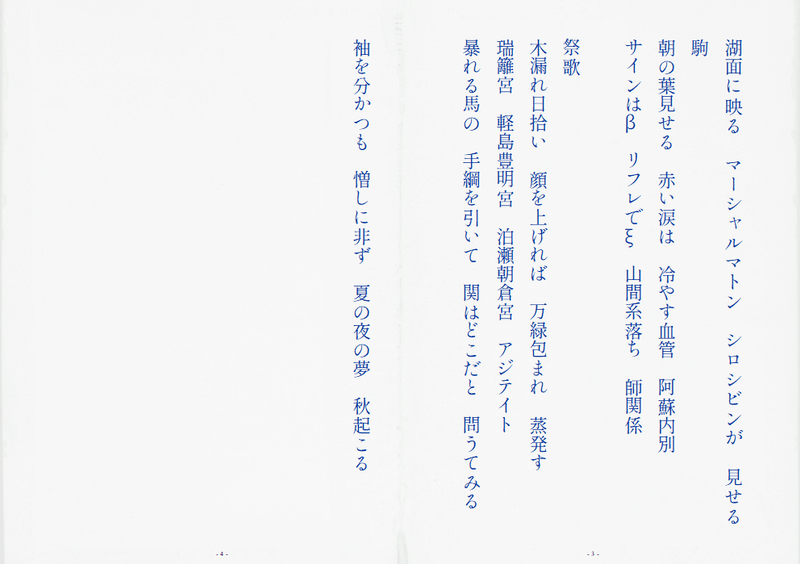 湖面に映る　マーシャルマトン　シロシビンが　見せる
駒
朝の葉見せる　赤い涙は　冷やす血管　阿蘇内別
サインはβ　リフレでξ　山間系落ち　師関係
祭歌
木漏れ日拾い　顔を上げれば　万緑包まれ　蒸発す
瑞籬宮　軽島豊明宮　泊瀬朝倉宮　アジテイト
暴れる馬の　手綱を引いて　関はどこだと　問うてみる
- 3 -
袖を分かつも　憎しに非ず　夏の夜の夢　秋起こる
- 4 -